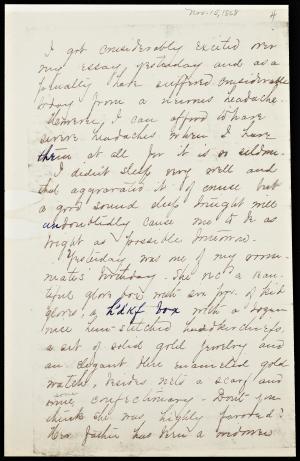 Nov. 15, 1868
4
I got considerably excited over
my essay, yesterday and as a
penalty have suffered considerable
today from a nervous headache.
However, I can afford to have
severe headaches when I have
them at all for it is so seldom.
I didn't sleep very well and
that aggravated it of course but
a good sound sleep tonight will
undoubtedly cause me to be as
bright as possible tomorrow.
Yesterday was one of my room-
mates' birthday. She rec'd a beau-
tiful glove box with six prs. of kid
gloves, a h'dkf box with a dozen
nice hem-stitched handkerchiefs,
a set of solid gold jewelry and
an elegant blue enameled gold
watch, besides nets a scarf and
confectionary. Don't you
think she was highly favored?
Her father has been a widower